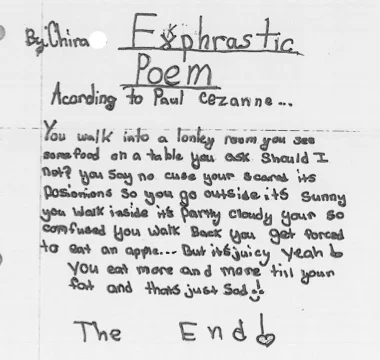 By: Chira
Exphrastic
Poem
Acording to Paul Cezanne...
You walk into a lonley room you see
some food on a table you ask Should I
not? you say no cuse your scared its
posionions so you go outside its sunny
you walk inside it's partly cloudy your so
confused you walk Back you get forced
to eat an apple... But its juicy yeah!
You eat more and more till your
fat and thats just Sad!
The End!